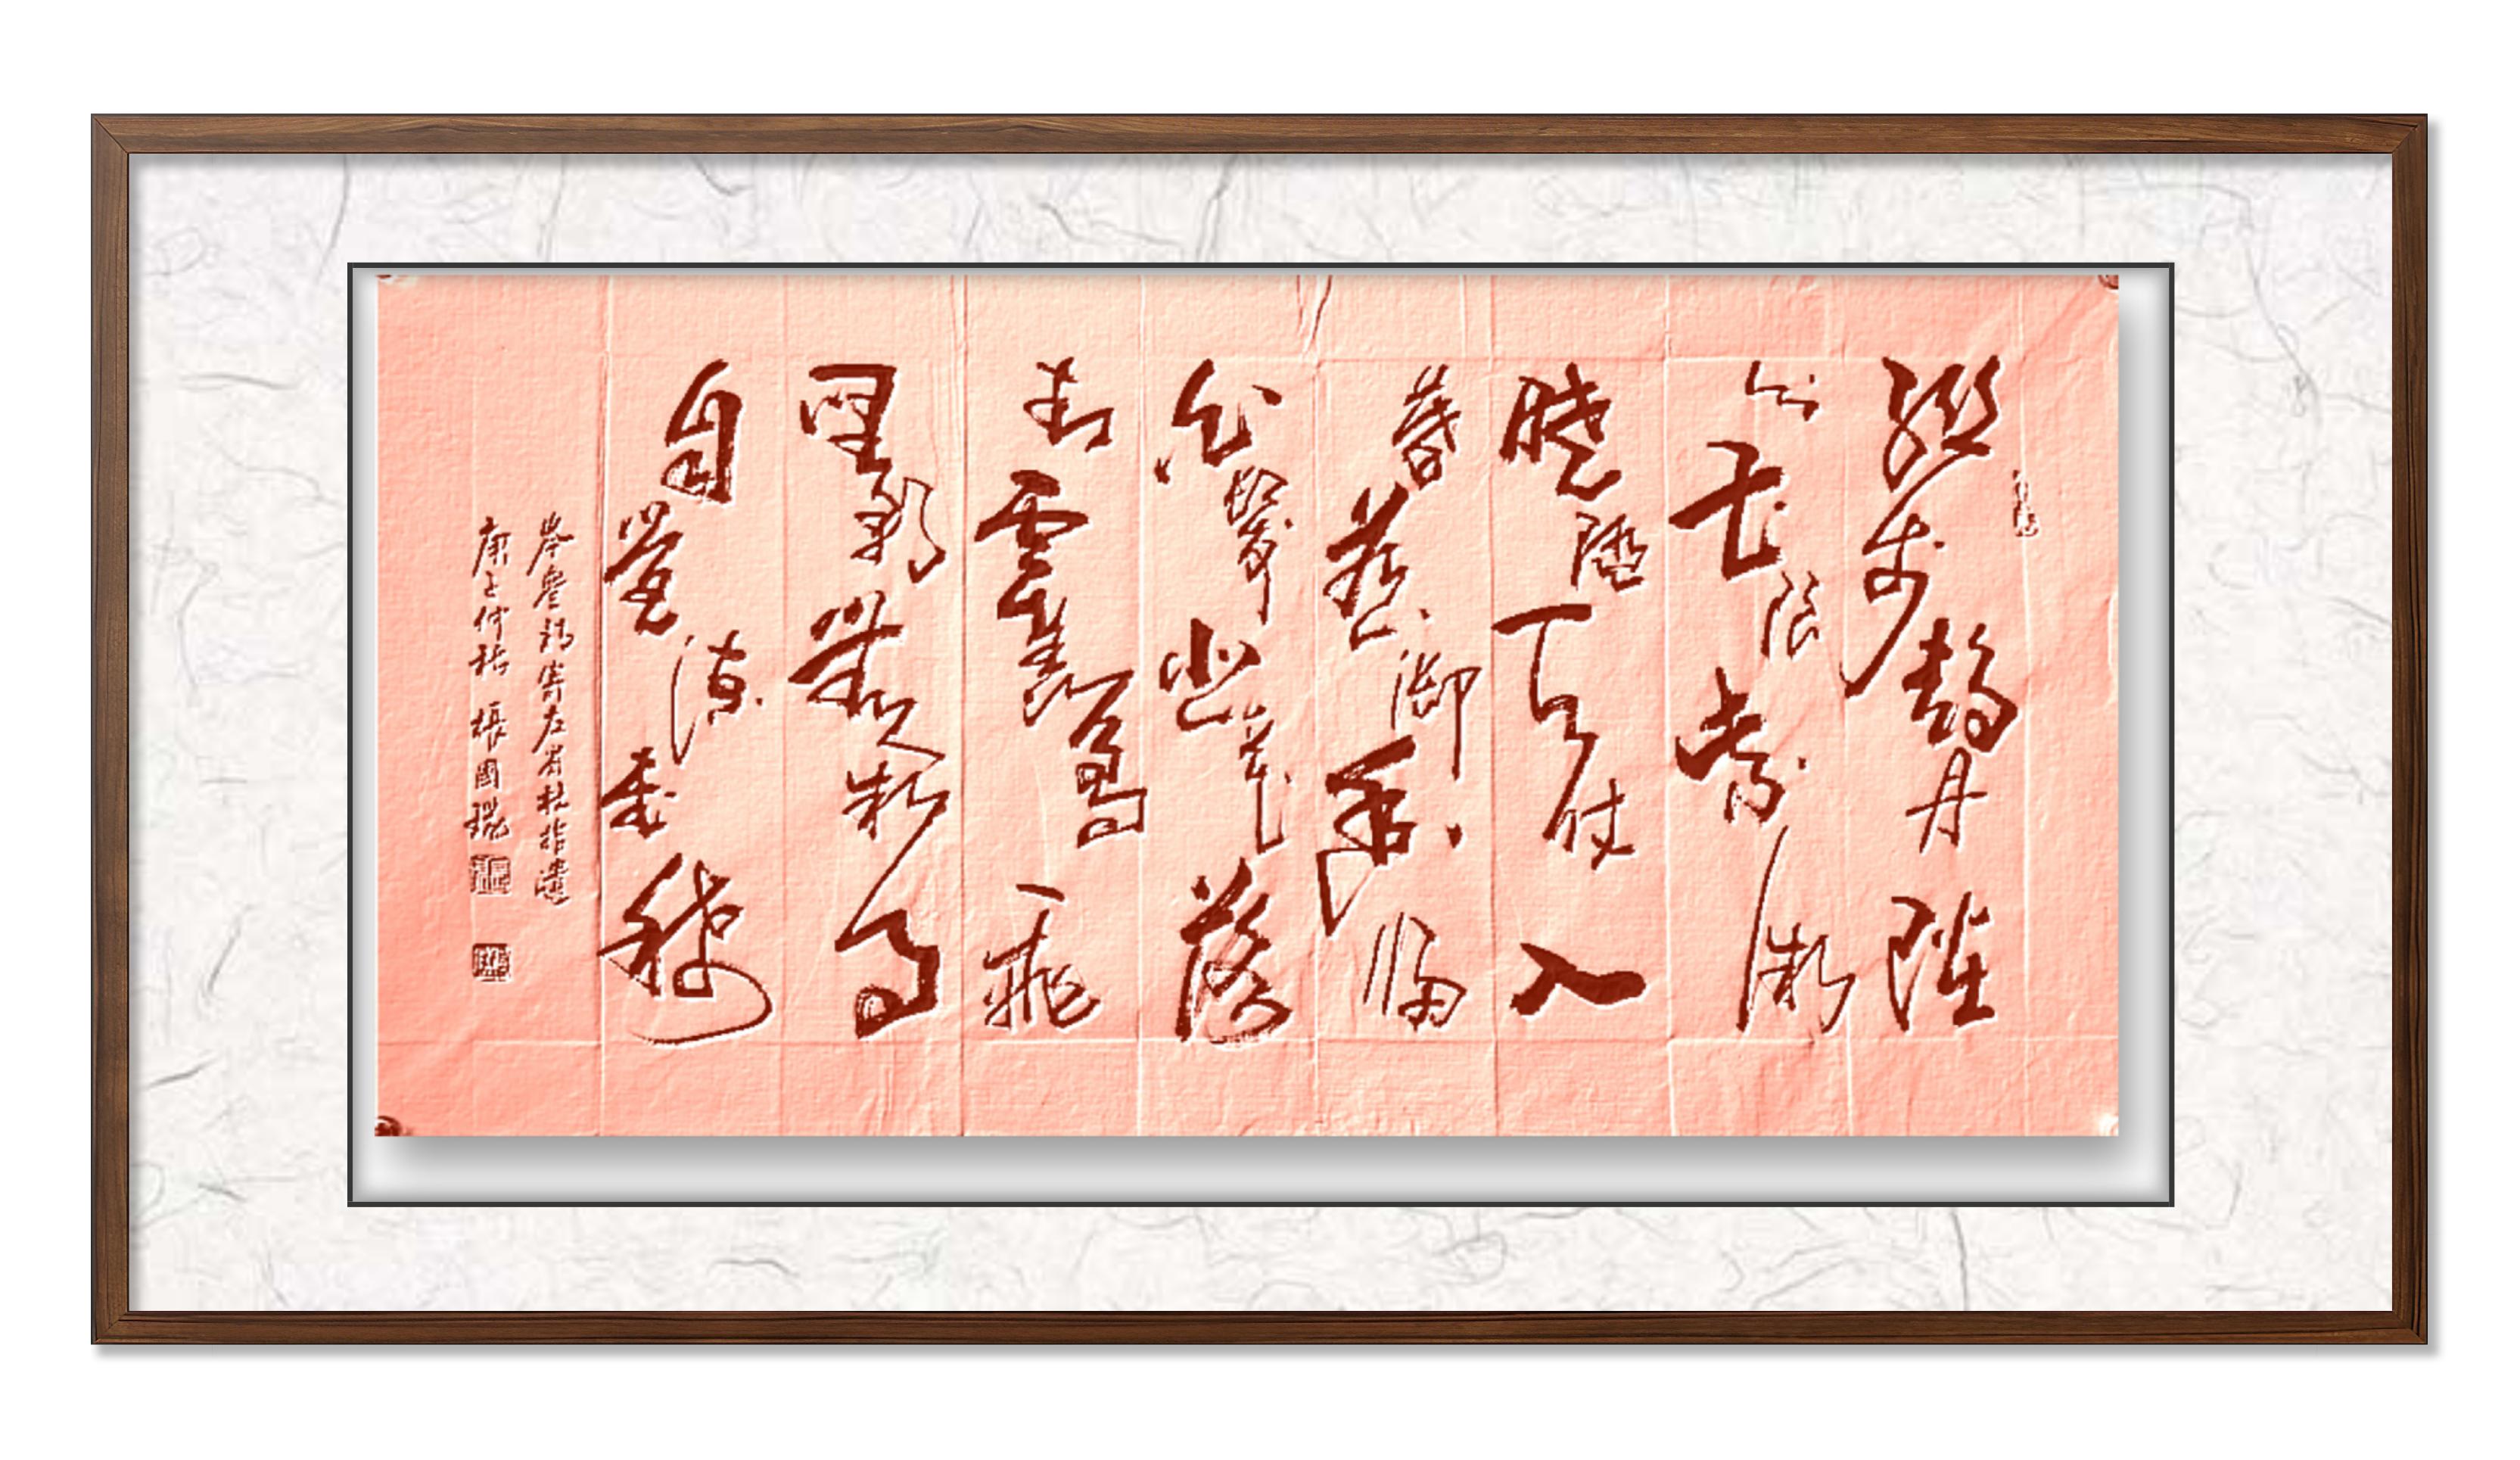 聯步趨丹陛
分曹限紫微
曉隨天仗入
暮惹御香歸
白髮悲花落
青雲羡鳥飛
聖朝無闕事
自覺諫書稀
岑參詩寄左省杜拾遺
庚子仲秋 張國琨